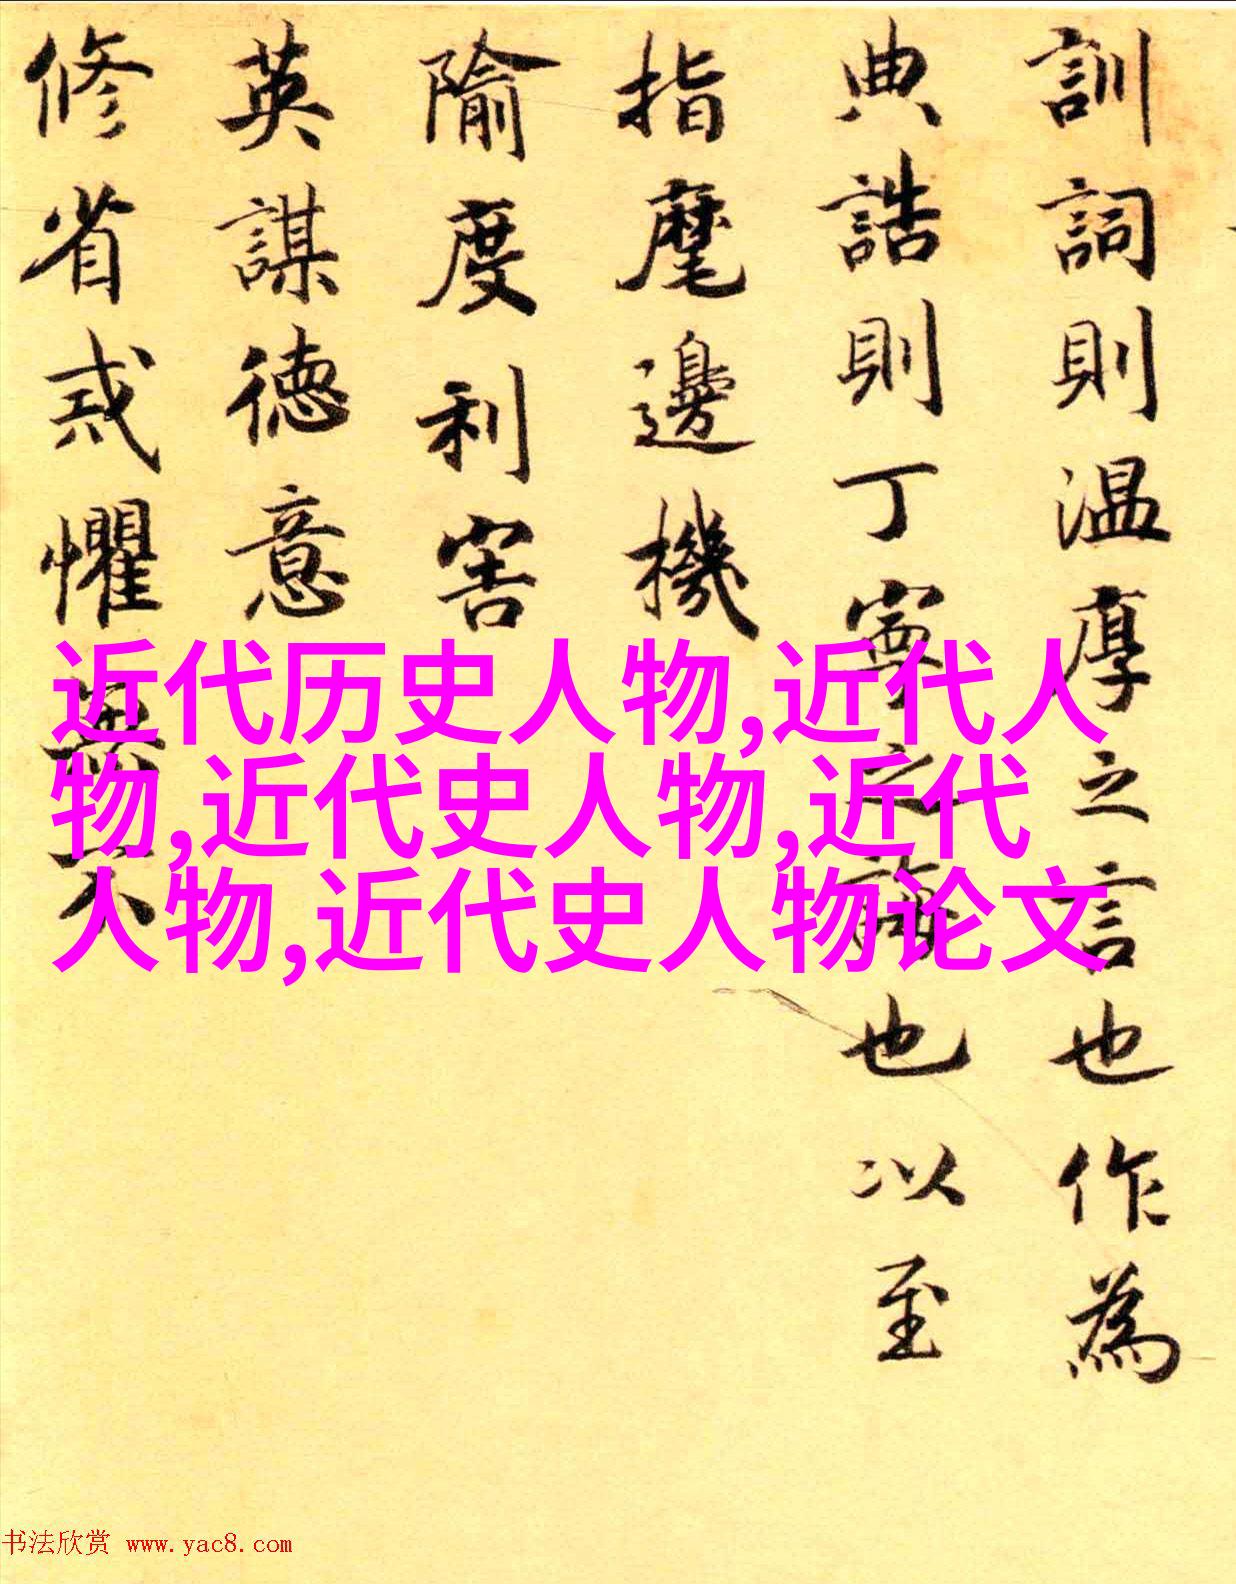 訓詞則温厚之言也作為
典誥則丁寧之也以至
指麾邊機
隃度利害
英謀徳意
修省戒懼無不
近代历史人物,近代人
物,近代史人物,近代
人物,近代史人物论文
书法欣赏 www.yac8.com